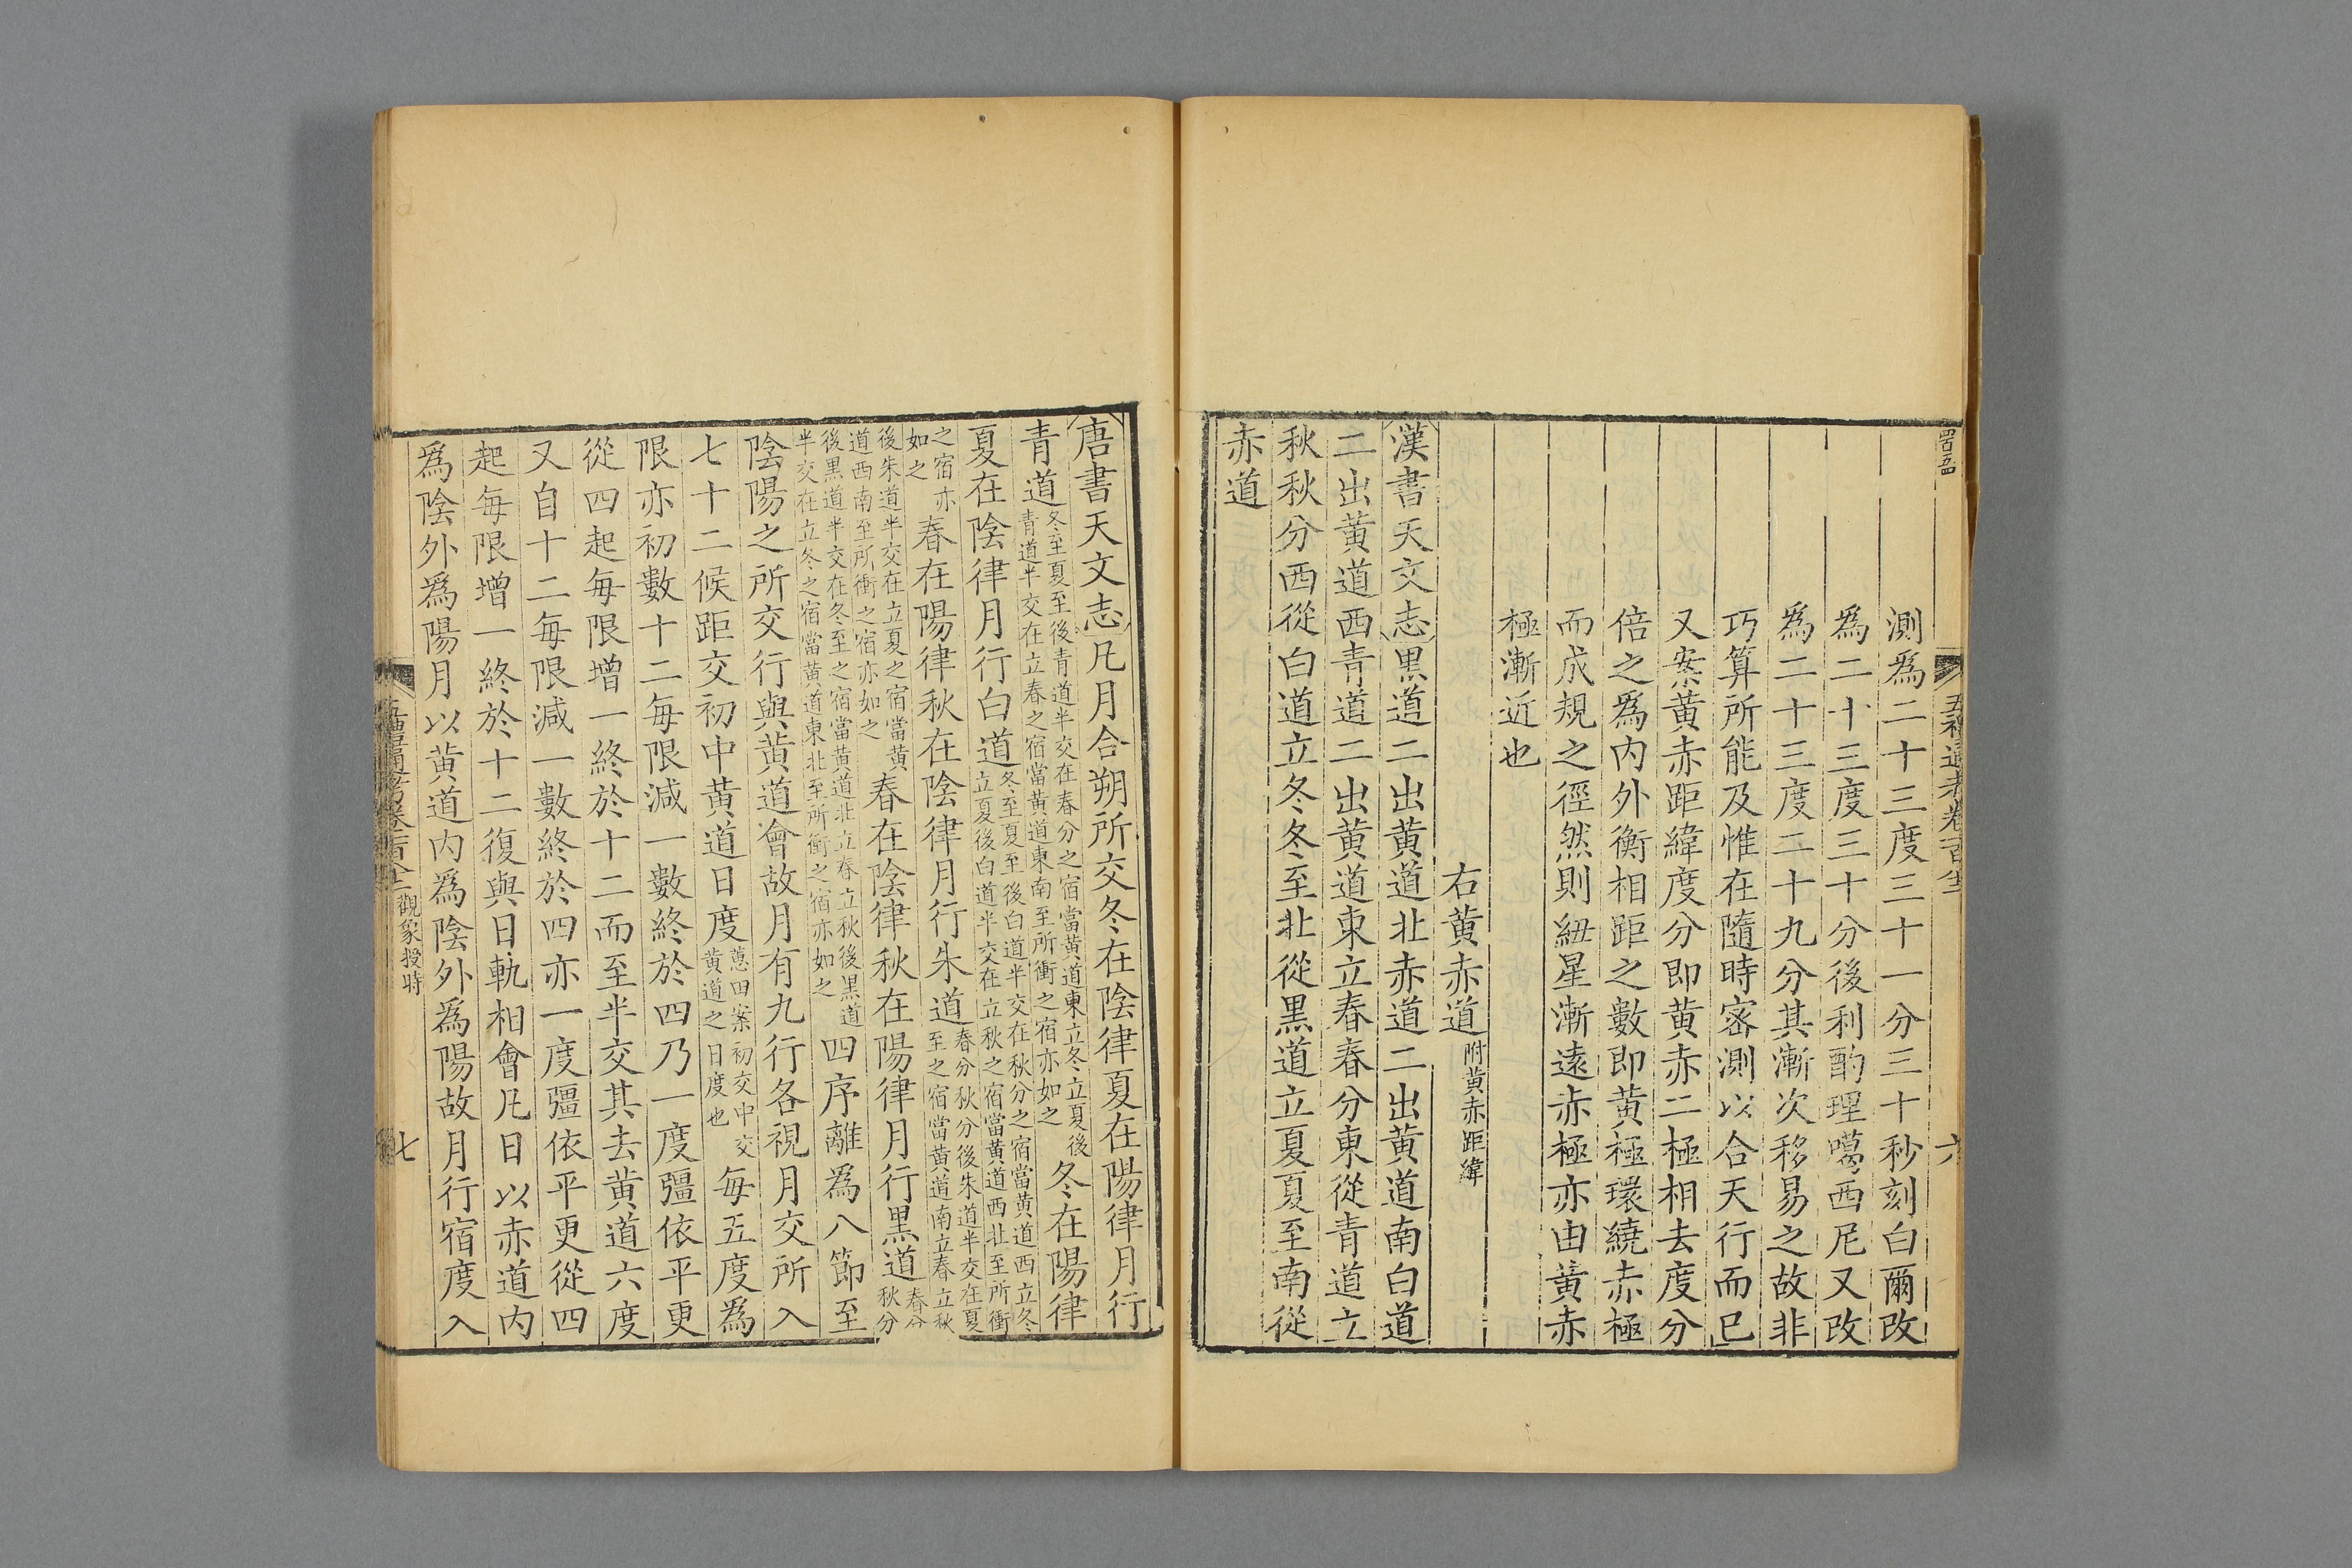 測爲二十三度三十一分三十秒刻白爾改
爲二十三度三十分後利酌理噶西尼又改
爲二十三度二十九分其漸次移易之故非
巧算所能及惟在隨時密測以合天行而已
又案黄赤距緯度分即黄赤二極相去度分
倍之爲内外衡相距之數即黄極環繞赤極
而成規之徑然則紐星漸遠赤極亦由黄赤
極漸近也
右黄赤道附黄赤距緯
漢書天文志黒道二出黄道北赤道二出黄道南白道
二出黄道西青道二出黄道東立春春分東從青道立
秋秋分西從白道立冬冬至北從黒道立夏夏至南從
赤道
六
唐書天文志凡月合朔所交冬在陰律夏在陽律月行
青道冬至夏至後青道半交在春分之宿當黄道東立冬立夏後
青道半交在立春之宿當黄道東南至所衝之宿亦如之冬在陽律
夏在陰律月行白道冬至夏至後白道半交在秋分之宿當黄道西立冬
立夏後白道半交在立秋之宿當黄道西北至所衝
之宿亦
如之春在陽律秋在陰律月行朱道春分秋分後朱道半交在夏
至之宿當黄道南立春立秋
後朱道半交在立夏之宿當黄
道西南至所衝之宿亦如之春在陰律秋在陽律月行黒道春分
秋分
後黒道半交在冬至之宿當黄道北立春立秋後黒道
半交在立冬之宿當黄道東北至所衝之宿亦如之四序離爲八節至
陰陽之所交行與黄道會故月有九行各視月交所入
七十二候距交初中黄道日度蕙田案初交中交
黄道之日度也每五度爲
限亦初數十二每限減一數終於四乃一度彊依平更
從四起每限增一終於十二而至半交其去黄道六度
又自十二每限減一數終於四亦一度彊依平更從四
起毎限增一終於十二復與日軌相會凡日以赤道内
爲陰外爲陽月以黄道内爲陰外爲陽故月行宿度入
觀象授時
七